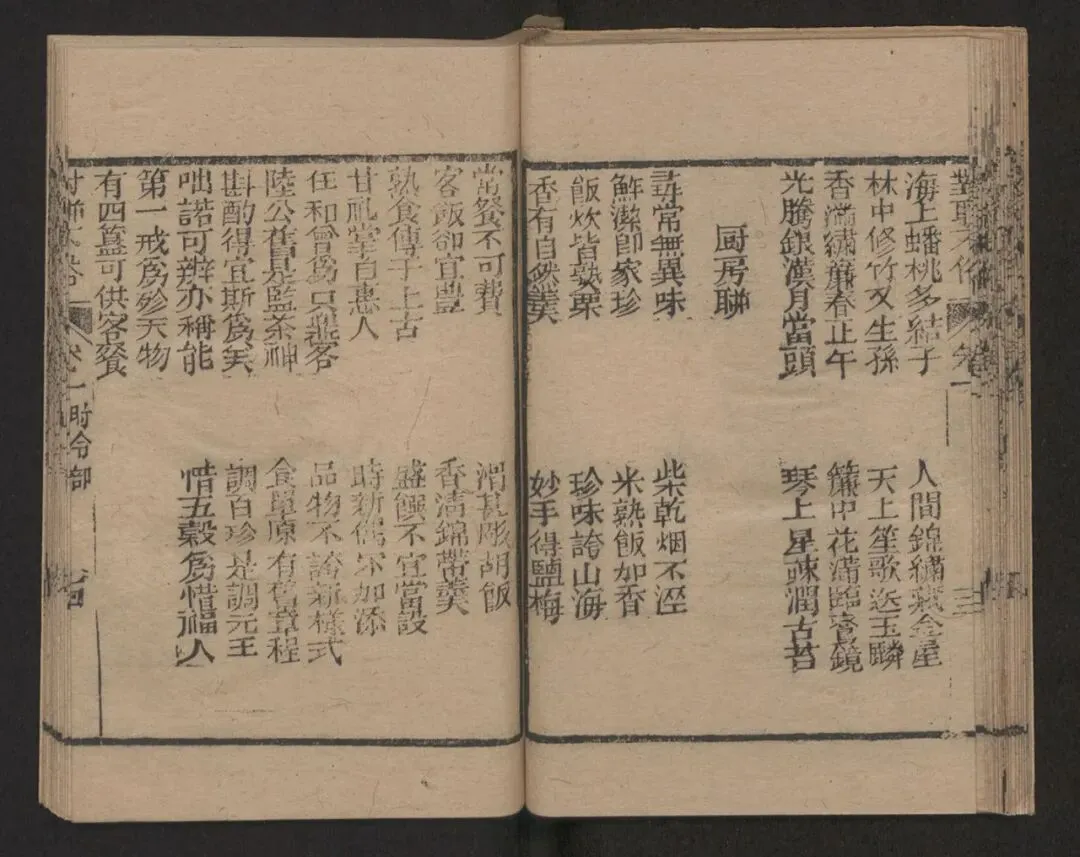 海上蟠桃多結子　人間錦繡藏金屋
林中修竹又生孫　天上笙歌送玉麟
香滿繡簾春正午　簾中花滿臨奩鏡
光騰銀漢月當頭　琴上星疎潤古苔
厨房聯
尋常無異味　柴乾烟不溼
鮮潔卽家珍　米熟飯如香
飯炊皆　栗　珍味誇山海
香有自然羹　妙手得鹽梅
常餐不可費　滑甚彫胡飯
客飯卻宜豐　香淸錦帶羹
熟食傳于上古　盛饌不宜當設
甘　掌自惠人　時新偶　加添
任和曾爲　客　品物不誇新樣式
陸公舊是監茶神　食單原有舊章程
斟酌得宜斯爲美　調百珍是調元王
咄諾可辦亦稱能　惜五穀爲惜福人
第一戒爲殄天物
有四簋可供客餐
卷一時令部